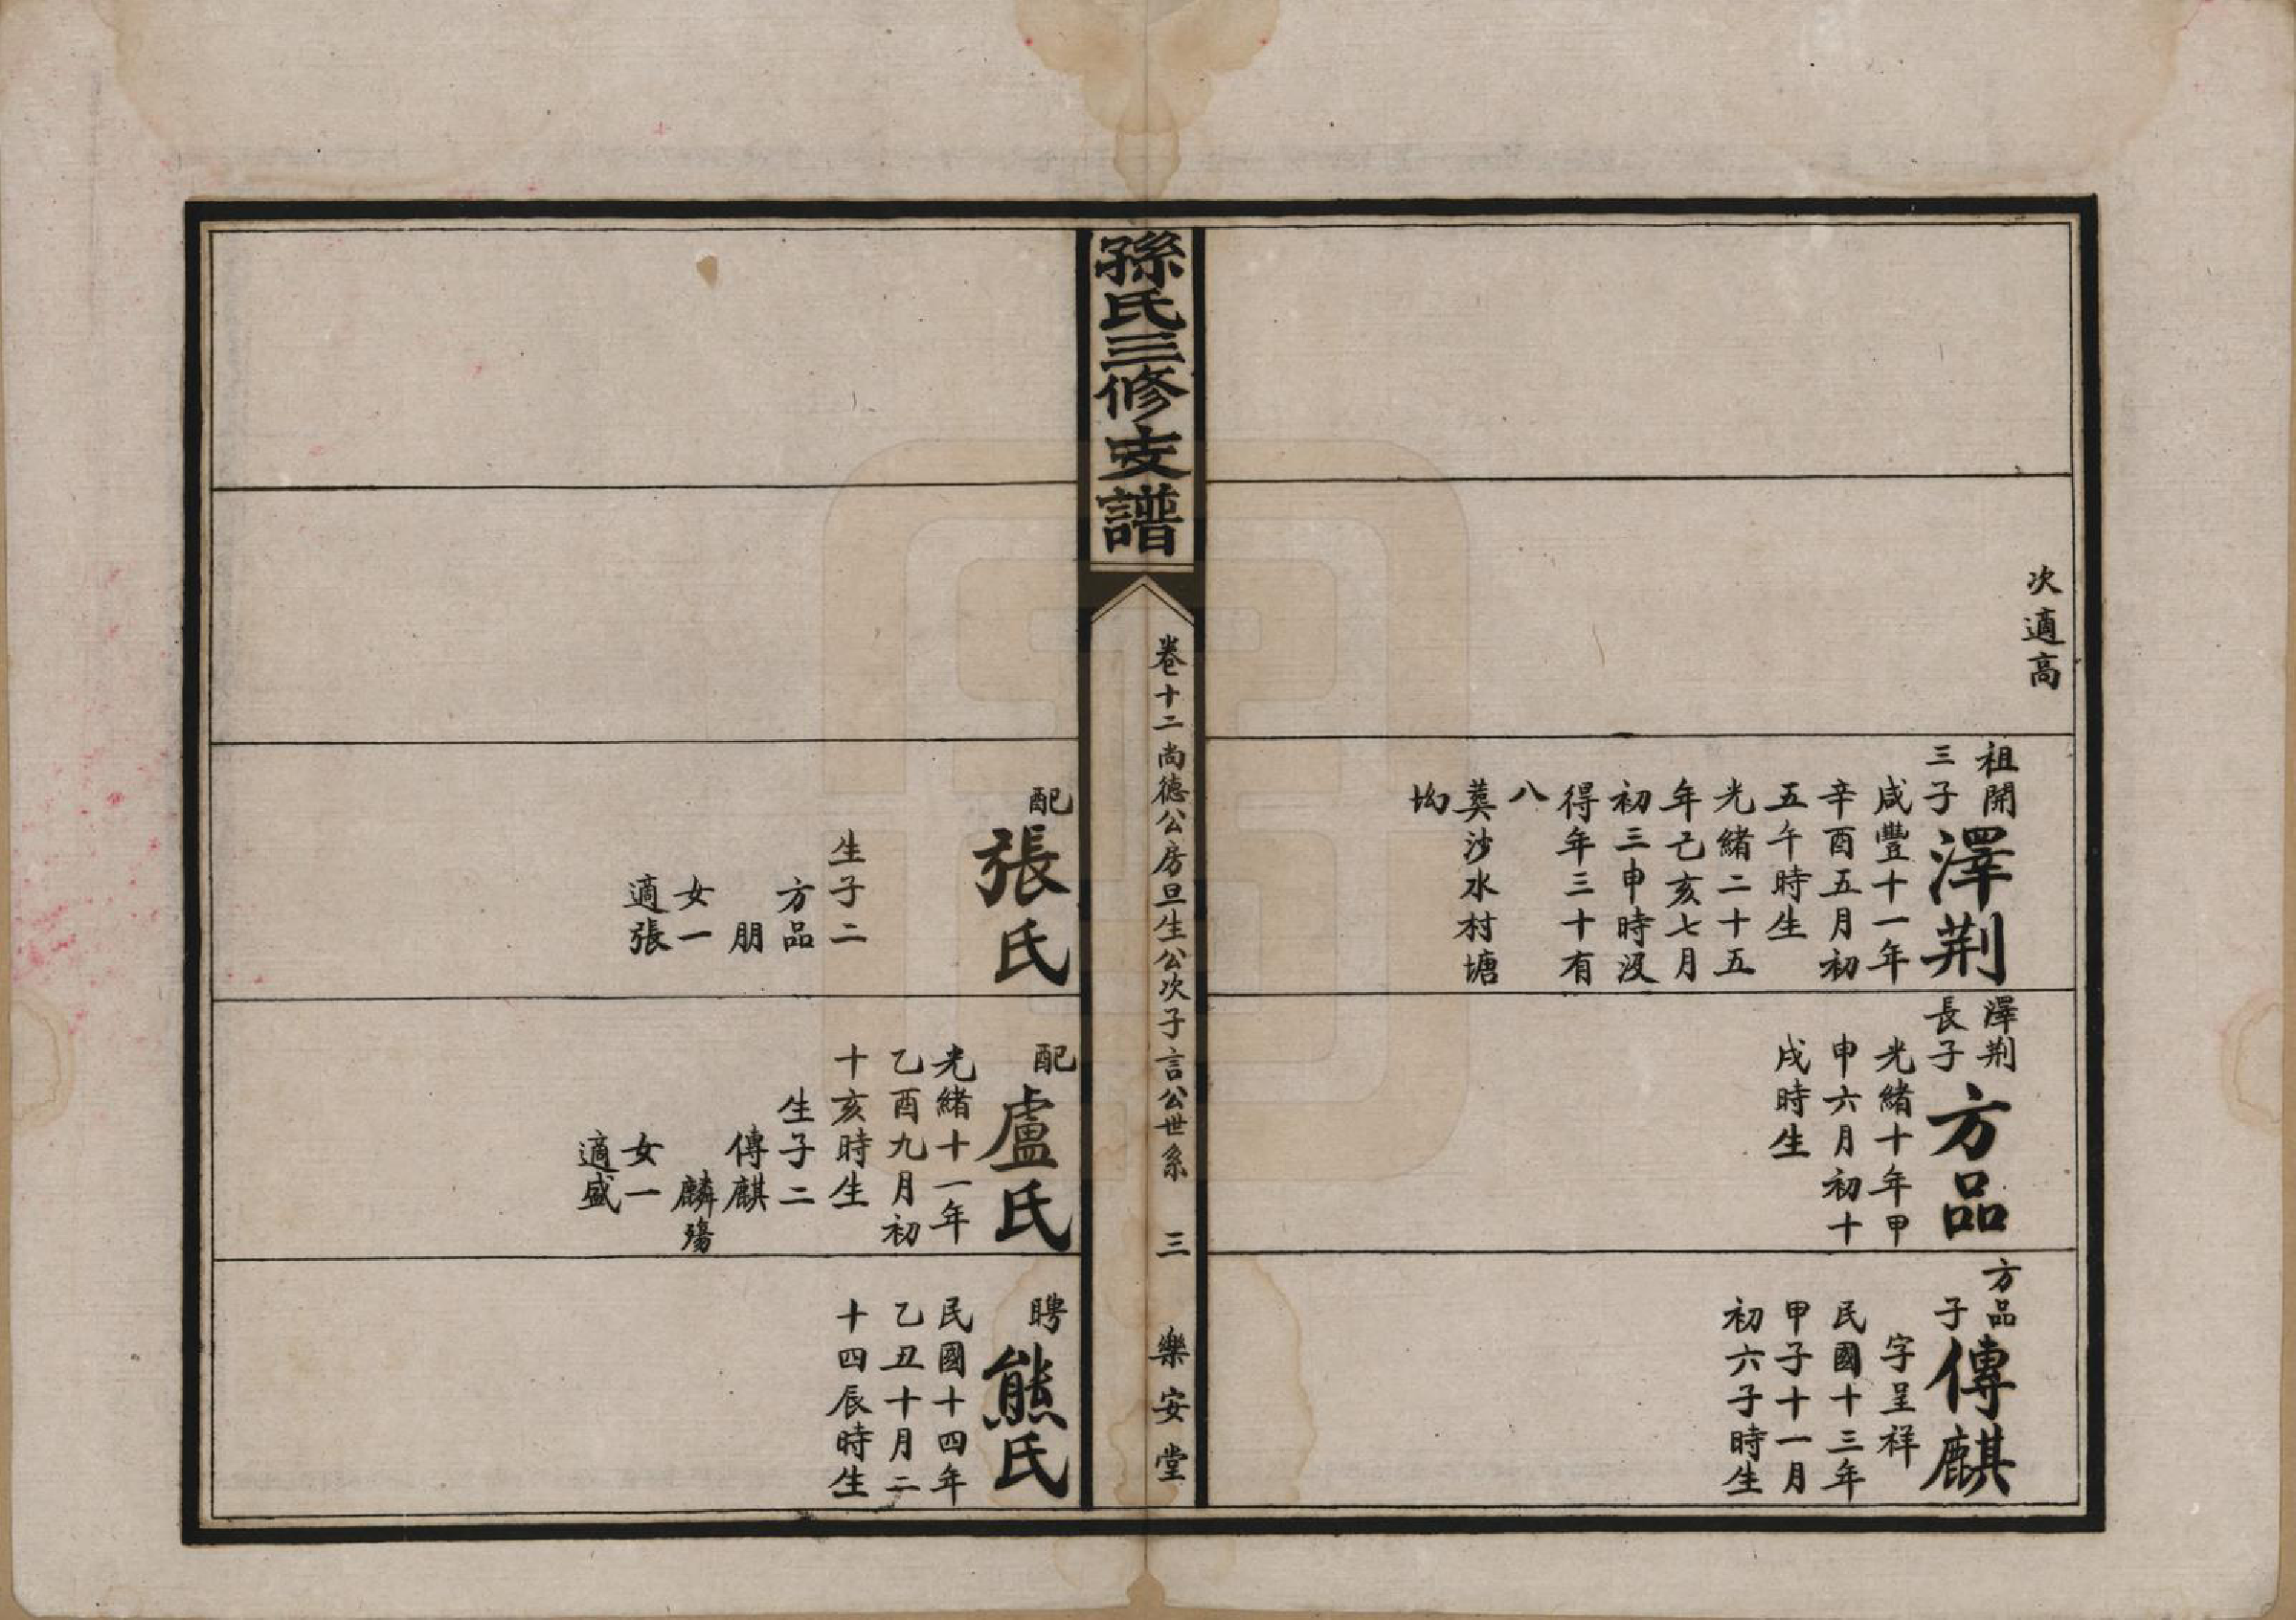 次適高
祖開
三子
澤荆
咸豐十一年
辛酉五月初
五午時生
光緒二十五
年己亥七月
初三申時沒
得年三十有
八
葬沙水村塘
坳
澤荆
長子
方品
光緒十年甲
申六月初十
戌時生
方品
子
傳麒
字呈祥
民國十三年
甲子十一月
初六子時生
孫氏三修支譜
卷十二尚德公房旦生公次子言公世系 三 樂安堂
配
張氏
生子二
方品
朋
女一
適張
配
盧氏
光緒十一年
乙酉九月初
十亥時生
生子二
傳麒
麟殤
女一
適盛
聘
熊氏
民國十四年
乙丑十月二
十四辰時生